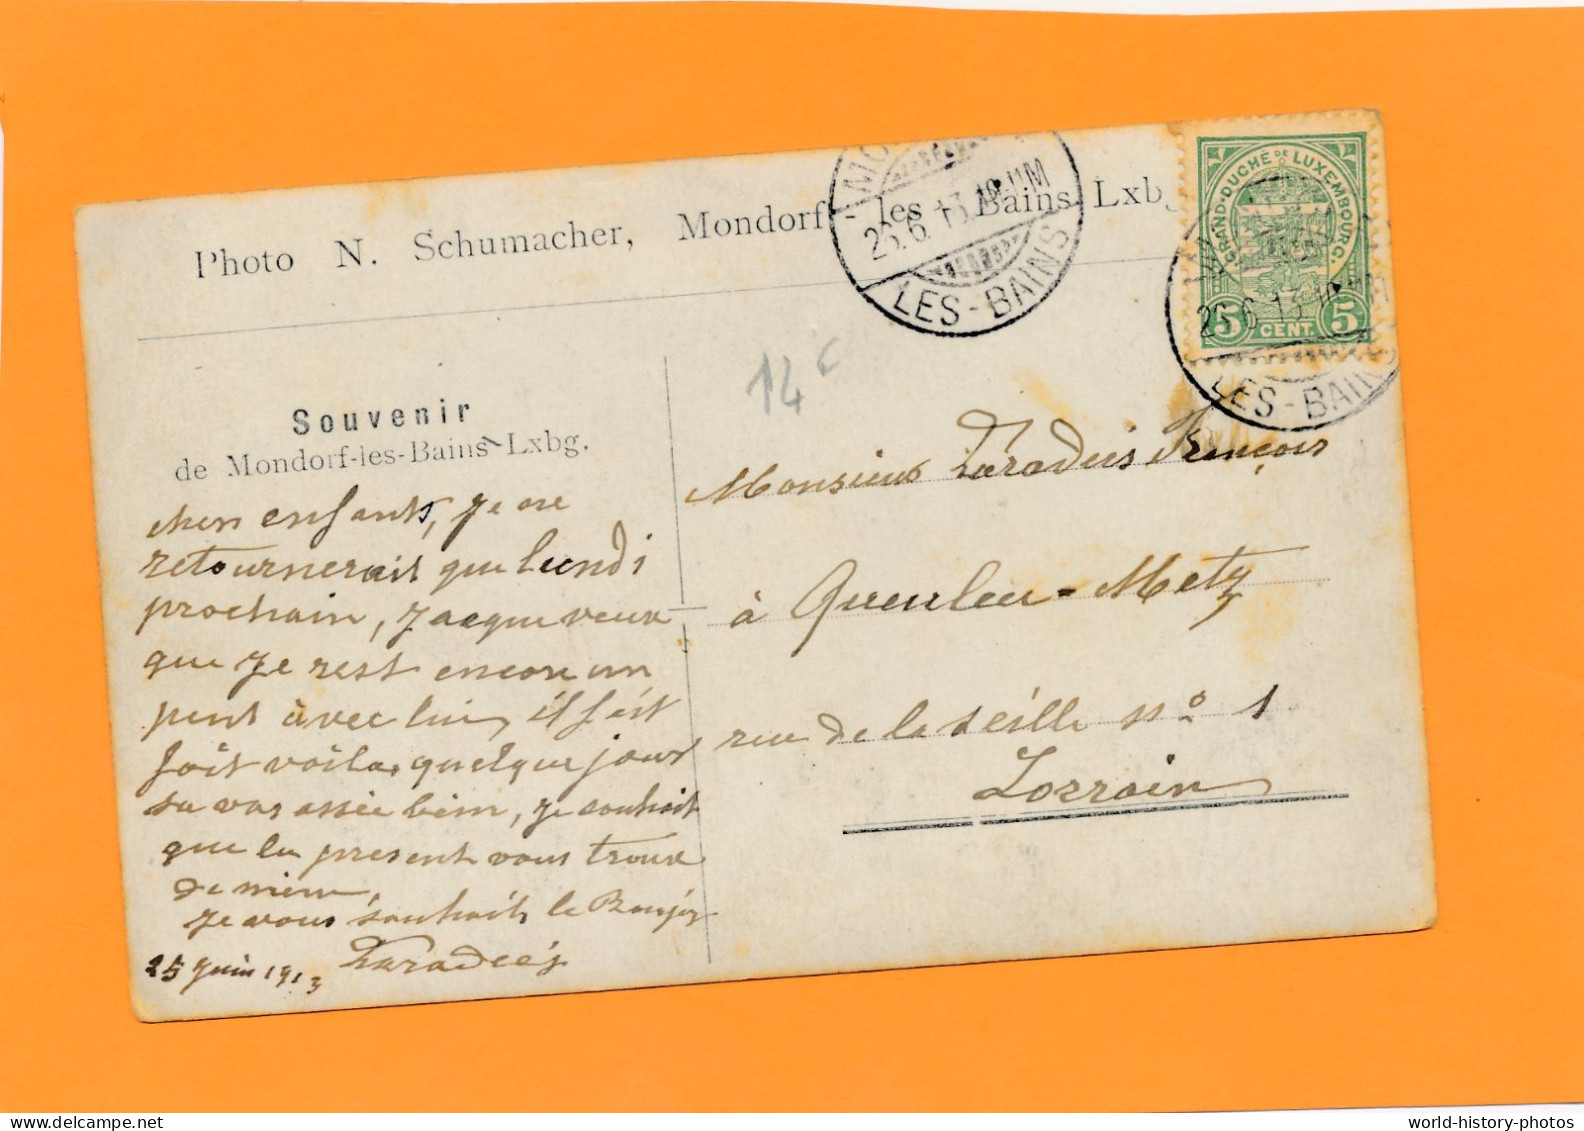 Photo N. Schumacher, Mondorf-les-Bains Lxbg
LES-BAINS
GRAND-DUCHÉ DE LUXEMBOURG.
5 CENT. 5
LES-BAINS
14 c
Souvenir
de Mondorf-les-Bains-Lxbg.
cher enfants, Je ne
retournerait que lundi
prochain, Jacque veux
que Je rest encore un
peut àvec lui, il fait
foit voila quelque jour
sa vas assée bien, je souhait
que la present vous trouve
de même,
je vous souhait le Bonjor
25 Juin 1913
Monsieur François
à Queuleu-Metz
rue de la seille no 1
Lorrain
world-history-photos